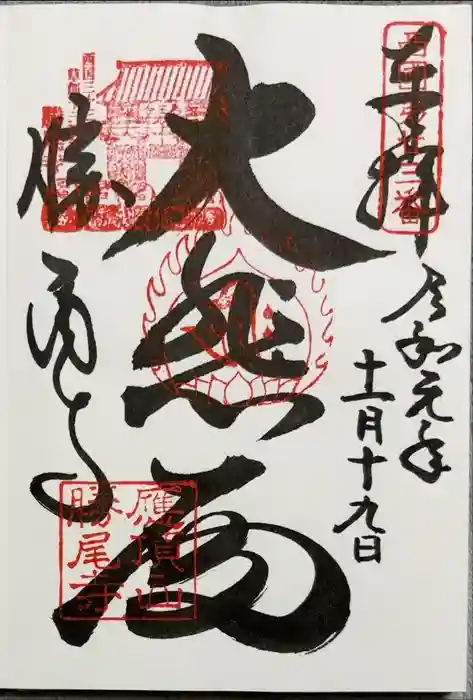 奉拝
令和元年
十一月十九日
大悲殿
勝尾寺
西国二十三番
應頂山
勝尾寺